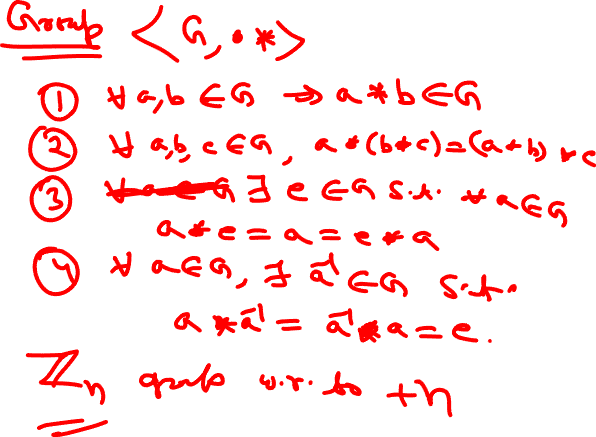 Group <G, *>
① ∀ a,b ∈ G ⇒ a * b ∈ G
② ∀ a,b,c ∈ G, a * (b * c) = (a * b) * c
③ ∃ e ∈ G s.t. ∀ a ∈ G
a * e = a = e * a
④ ∀ a ∈ G, ∃ a⁻¹ ∈ G s.t.
a * a⁻¹ = a⁻¹ * a = e.
ℤₙ group w.r. to +n